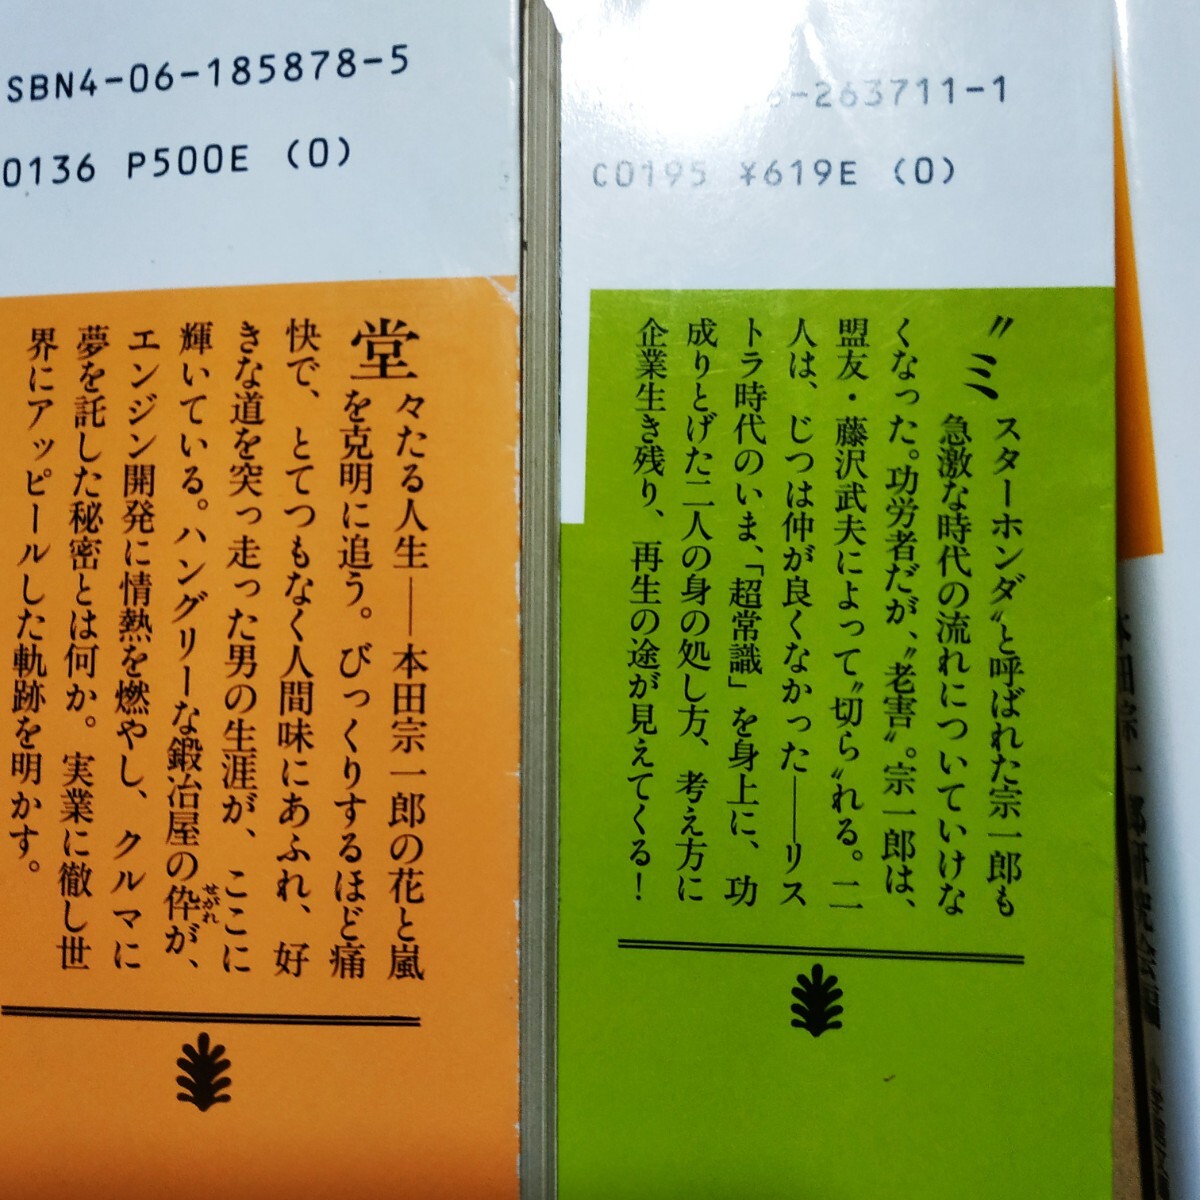 SBN4-06-185878-5
0136 P500E (0)
堂々たる人生——本田宗一郎の花と嵐
を克明に追う。びっくりするほど痛
快で、とてつもなく人間味にあふれ、好
きな道を突っ走った男の生涯が、ここに
輝いている。ハングリーな鍛冶屋の伜が、
せがれ
エンジン開発に情熱を燃やし、クルマに
夢を託した秘密とは何か。実業に徹し世
界にアッピールした軌跡を明かす。
6-263711-1
C0195 ¥619E (0)
〝ミスターホンダ〟と呼ばれた宗一郎も
急激な時代の流れについていけな
くなった。功労者だが、〝老害〟。宗一郎は、
盟友・藤沢武夫によって〝切ら〟れる。二
人は、じつは仲が良くなかった——リス
トラ時代のいま、「超常識」を身上に、功
成りとげた二人の身の処し方、考え方に
企業生き残り、再生の途が見えてくる！
本田宗一郎研究会編